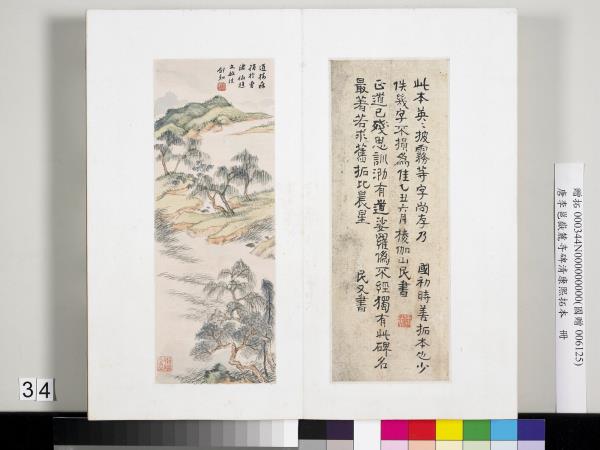 此本英英披霧等字尚存乃 國初時善拓本也少
佚幾字不損為佳乙丑六月棱伽山民書
正道已殘思訓泐有道娑羅偽不經獨有此碑名
最著若求舊拓比晨星
民又書
贈拓 000344N000000000(國贈 006125)
唐李邕嶽麓寺碑清康熙拓本 冊
34